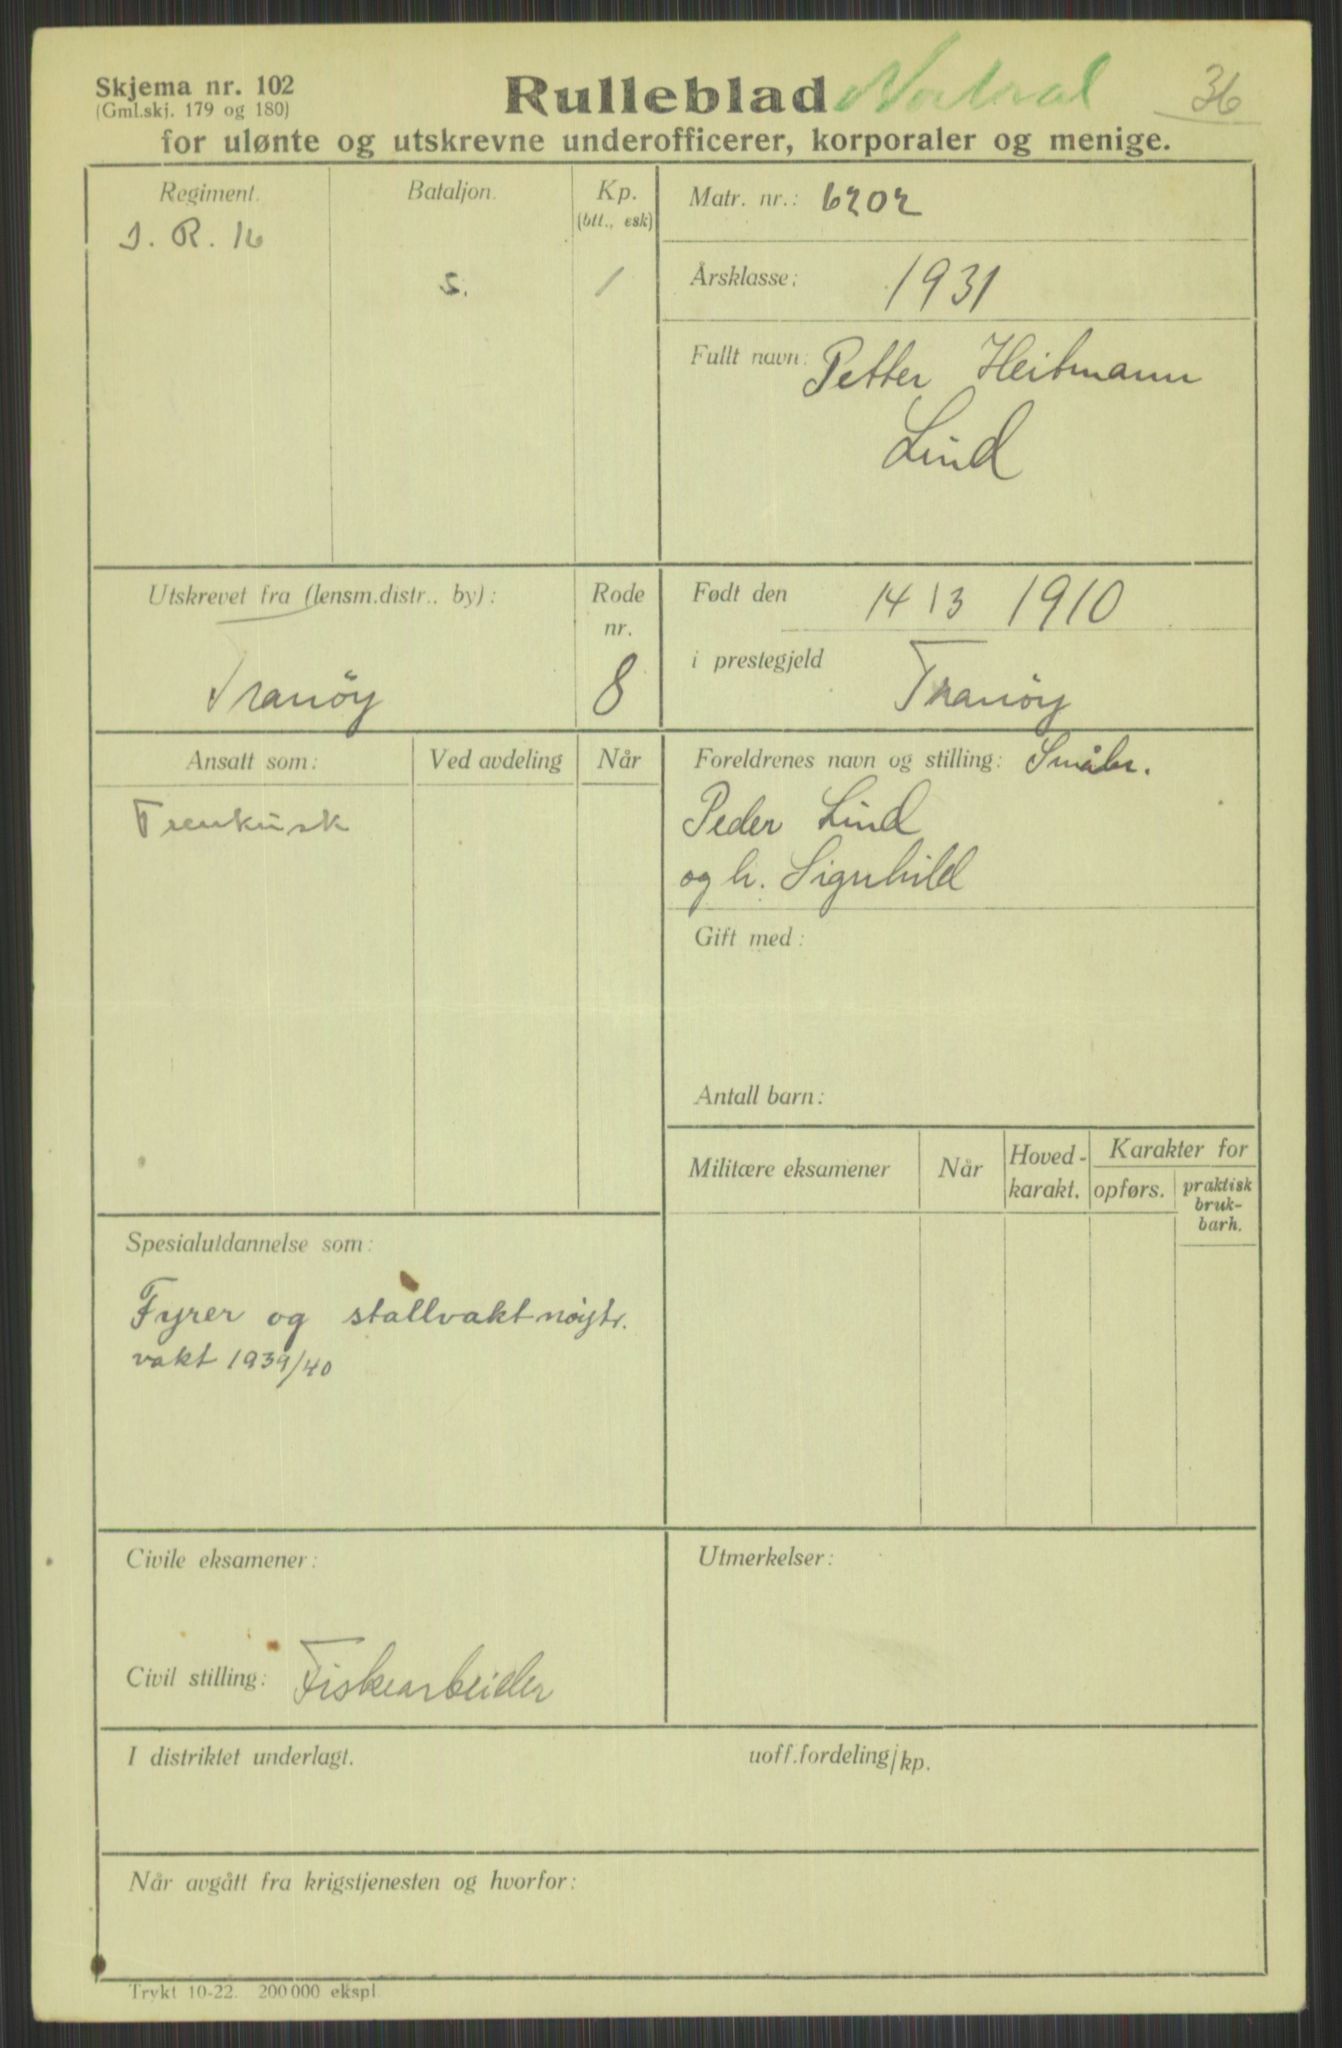 Skjema nr. 102
(Gml.skj. 179 og 180)
Rulleblad
36
for ulønte og utskrevne underofficerer, korporaler og menige.
Regiment.
J. R. 16
Bataljon.
S.
Kp.
(btt., esk)
1
Matr. nr.: 6202
Årsklasse: 1931
Fullt navn: Petter Heitmann
Lind
Utskrevet fra (lensm.distr., by):
Tranöy
Rode
nr.
8
Født den 14/3 1910
i prestegjeld Tranöy
Ansatt som:
Trenkusk
Ved avdeling
Når
Foreldrenes navn og stilling: Småbr.
Peder Lind
og h. Signhild
Gift med:
Antall barn:
Militære eksamener
Når
Hoved-
karakt.
Karakter for
opførs.
praktisk
bruk-
barh.
Spesialutdannelse som:
Fyrer og stallvakt nøytr.
vakt 1939/40
Civile eksamener:
Civil stilling: Fiskearbeider
Utmerkelser:
I distriktet underlagt.
uoff.fordeling/kp.
Når avgått fra krigstjenesten og hvorfor:
Trykt 10-22. 200 000 ekspl.